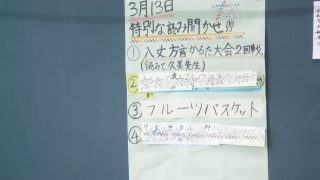 3月13日
特別な読み聞かせ!!
①八丈方言かるた大会2回戦
(読み手 久美先生)
②
③フルーツバスケット
④おたのしみ